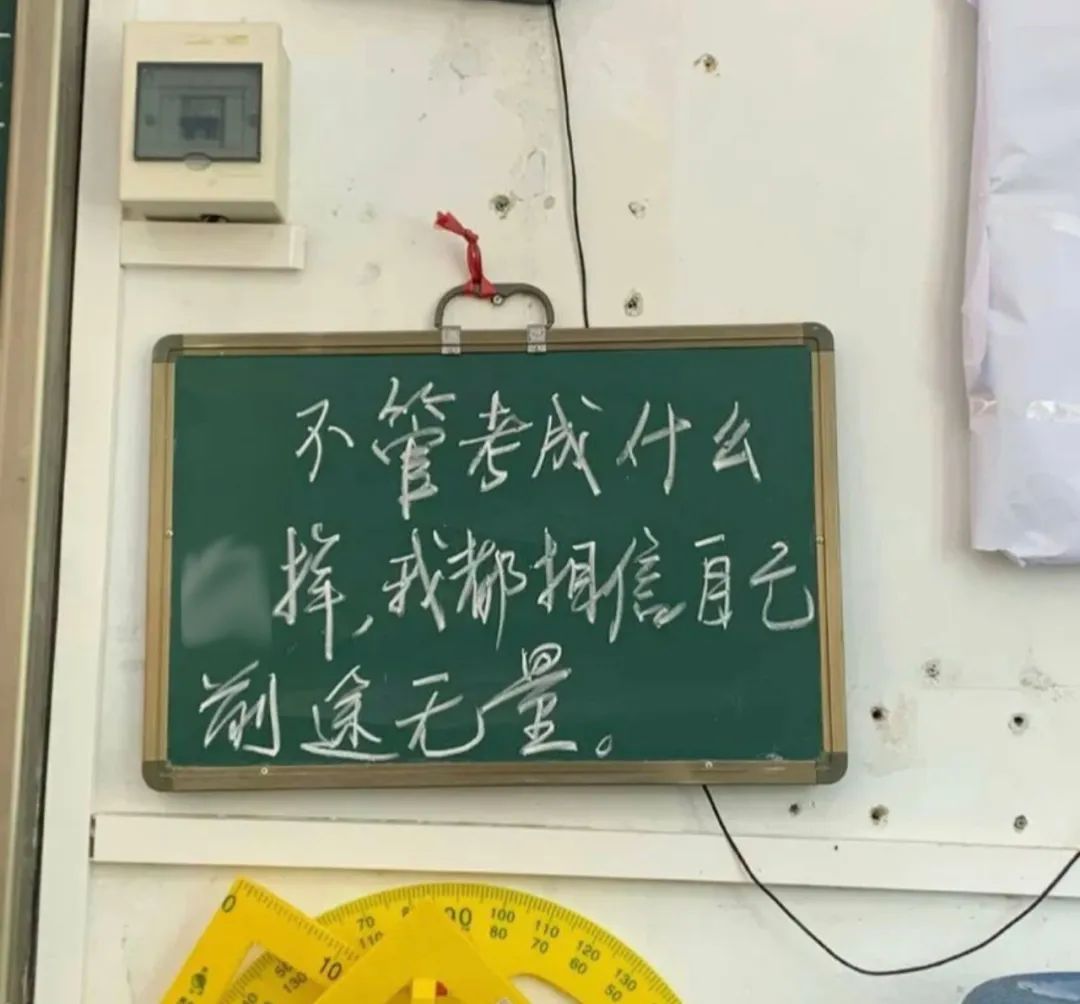 不管考成什么
样，我都相信自己
前途无量。
0
10
70
110
100
80
110
70
120
60
130
50